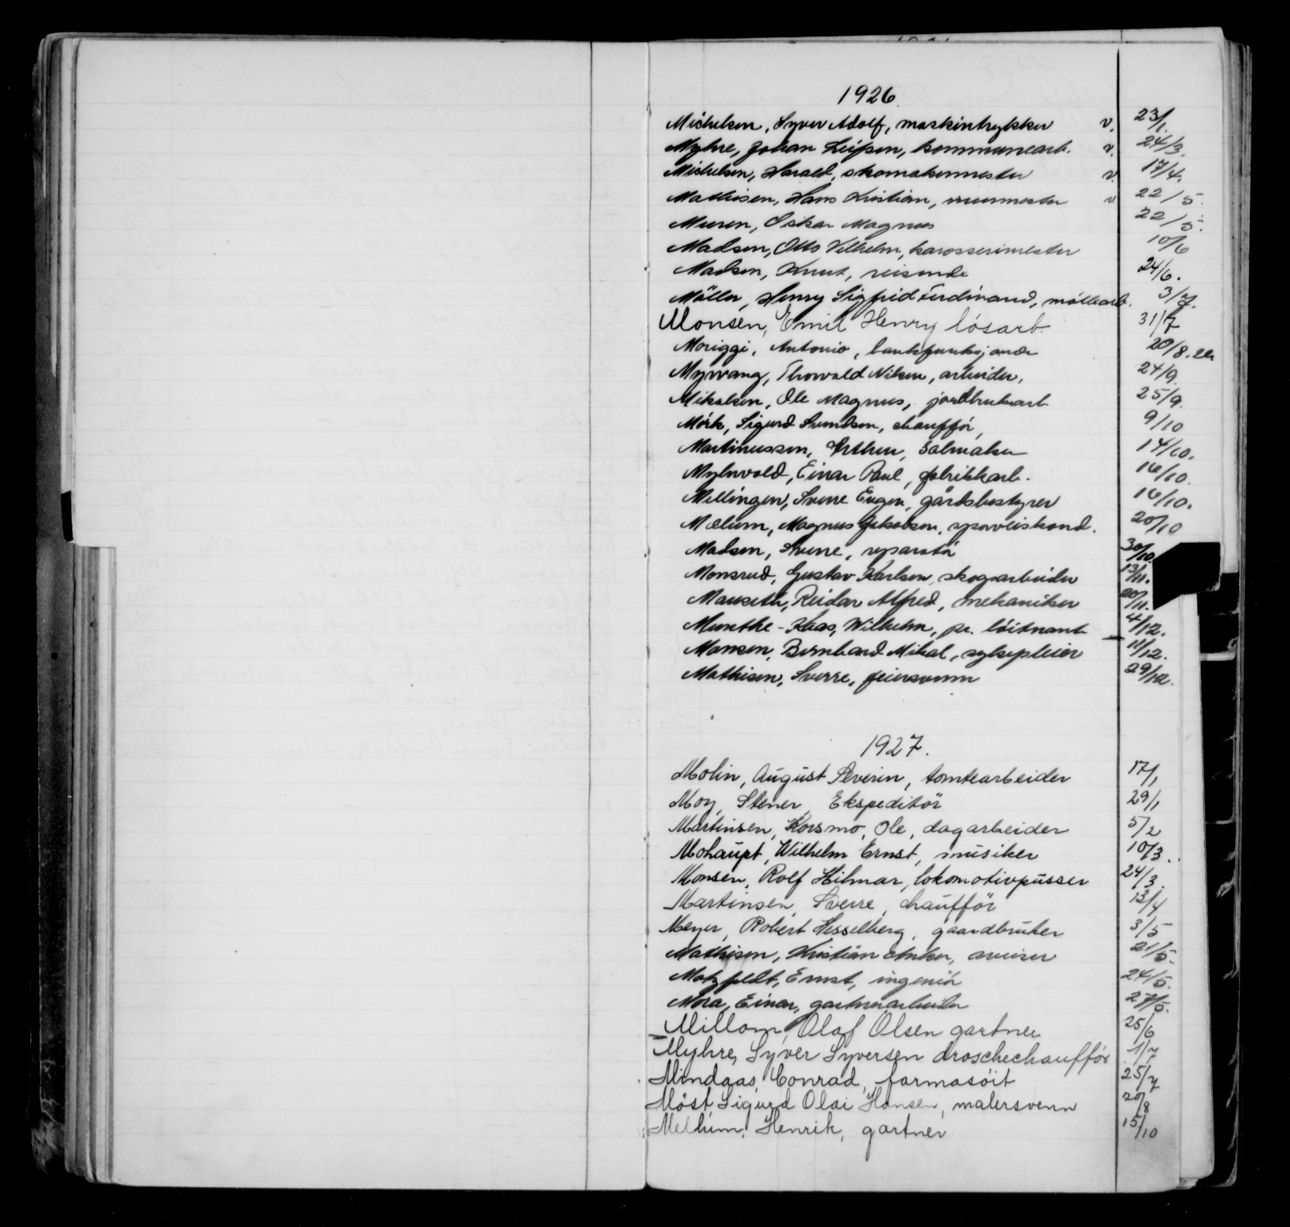 1926.
Michelsen, Syver Adolf, maskintrykker v. 23/1.
Myhre, Johan Leifsen, kommunearb. v. 24/3.
Michelsen, Harald, skomakermester v. 17/4.
Mathisen, Hans Kristian, murmester v 22/5.
Muren, Oskar Magnus 22/5.
Madsen, Otto Vilhelm, karosserimester 10/6
Madsen, Knut, reisende 24/6.
Möller, Henry Sigfrid Ferdinand, møllearb. 3/7.
Monsen, Emil Henry løsarb. 31/7
Moriggi, Antonio, bankfunksjonær 20/8.
Myrvang, Thorvald Nilsen, arbeider. 24/9.
Mikalsen, Ole Magnus, jordbruksarb 25/9.
Mörk, Sigurd Svendsen, chaufför, 9/10
Martinussen, Arthur, Salmaker 14/10.
Myhrvold, Einar Paul, fabrikkarb. 16/10.
Mellingen, Sverre Eugen, gårdsbestyrer 16/10.
Mælum, Magnus Jakobsen, sporveiskond. 20/10
Madsen, Sverre, reparatør 30/10.
Monsrud, Gustav Karlsen, skogsarbeider 13/11.
Mauseth, Reidar Alfred, mekaniker 20/11.
Munthe-Kaas, Wilhelm, pr. löitnant 4/12.
Monsen, Bernhard Mikal, sykepleier 11/12.
Mathisen, Sverre, feiersvenn 29/12.
1927.
Molin, August Severin, tomtearbeider 17/1
Moy, Stener, Ekspeditör 29/1
Martinsen, Korsmo, Ole, dagarbeider 5/2
Mohaupt, Wilhelm Ernst, musiker 10/3.
Monsen, Rolf Hilmar, lokomotivpusser 24/3.
Martinsen, Sverre, chaufför 13/4
Meyer, Robert Hesselberg, gaardbruker 3/5
Mathisen, Kristian Anker, avviser 21/5.
Motzfeldt, Ernst, ingeniör 24/5.
Mora, Einar, gartnerarbeider 27/5.
Millom, Olaf Olsen gartner 25/6
Myhre, Syver Syversen droschechaufför 1/7
Mindaas, Conrad, farmasöit 25/7
Möst, Sigurd Olai Hansen, malersvenn 20/8
Melhum, Henrik, gartner 15/10